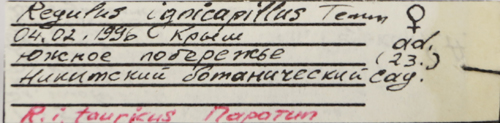 Regulus ignicapillus Temm ♀
04.02.1996 Крым ad.
Южное побережье (23.)
Никитский ботанический сад.
R. i. tauricus Паротип